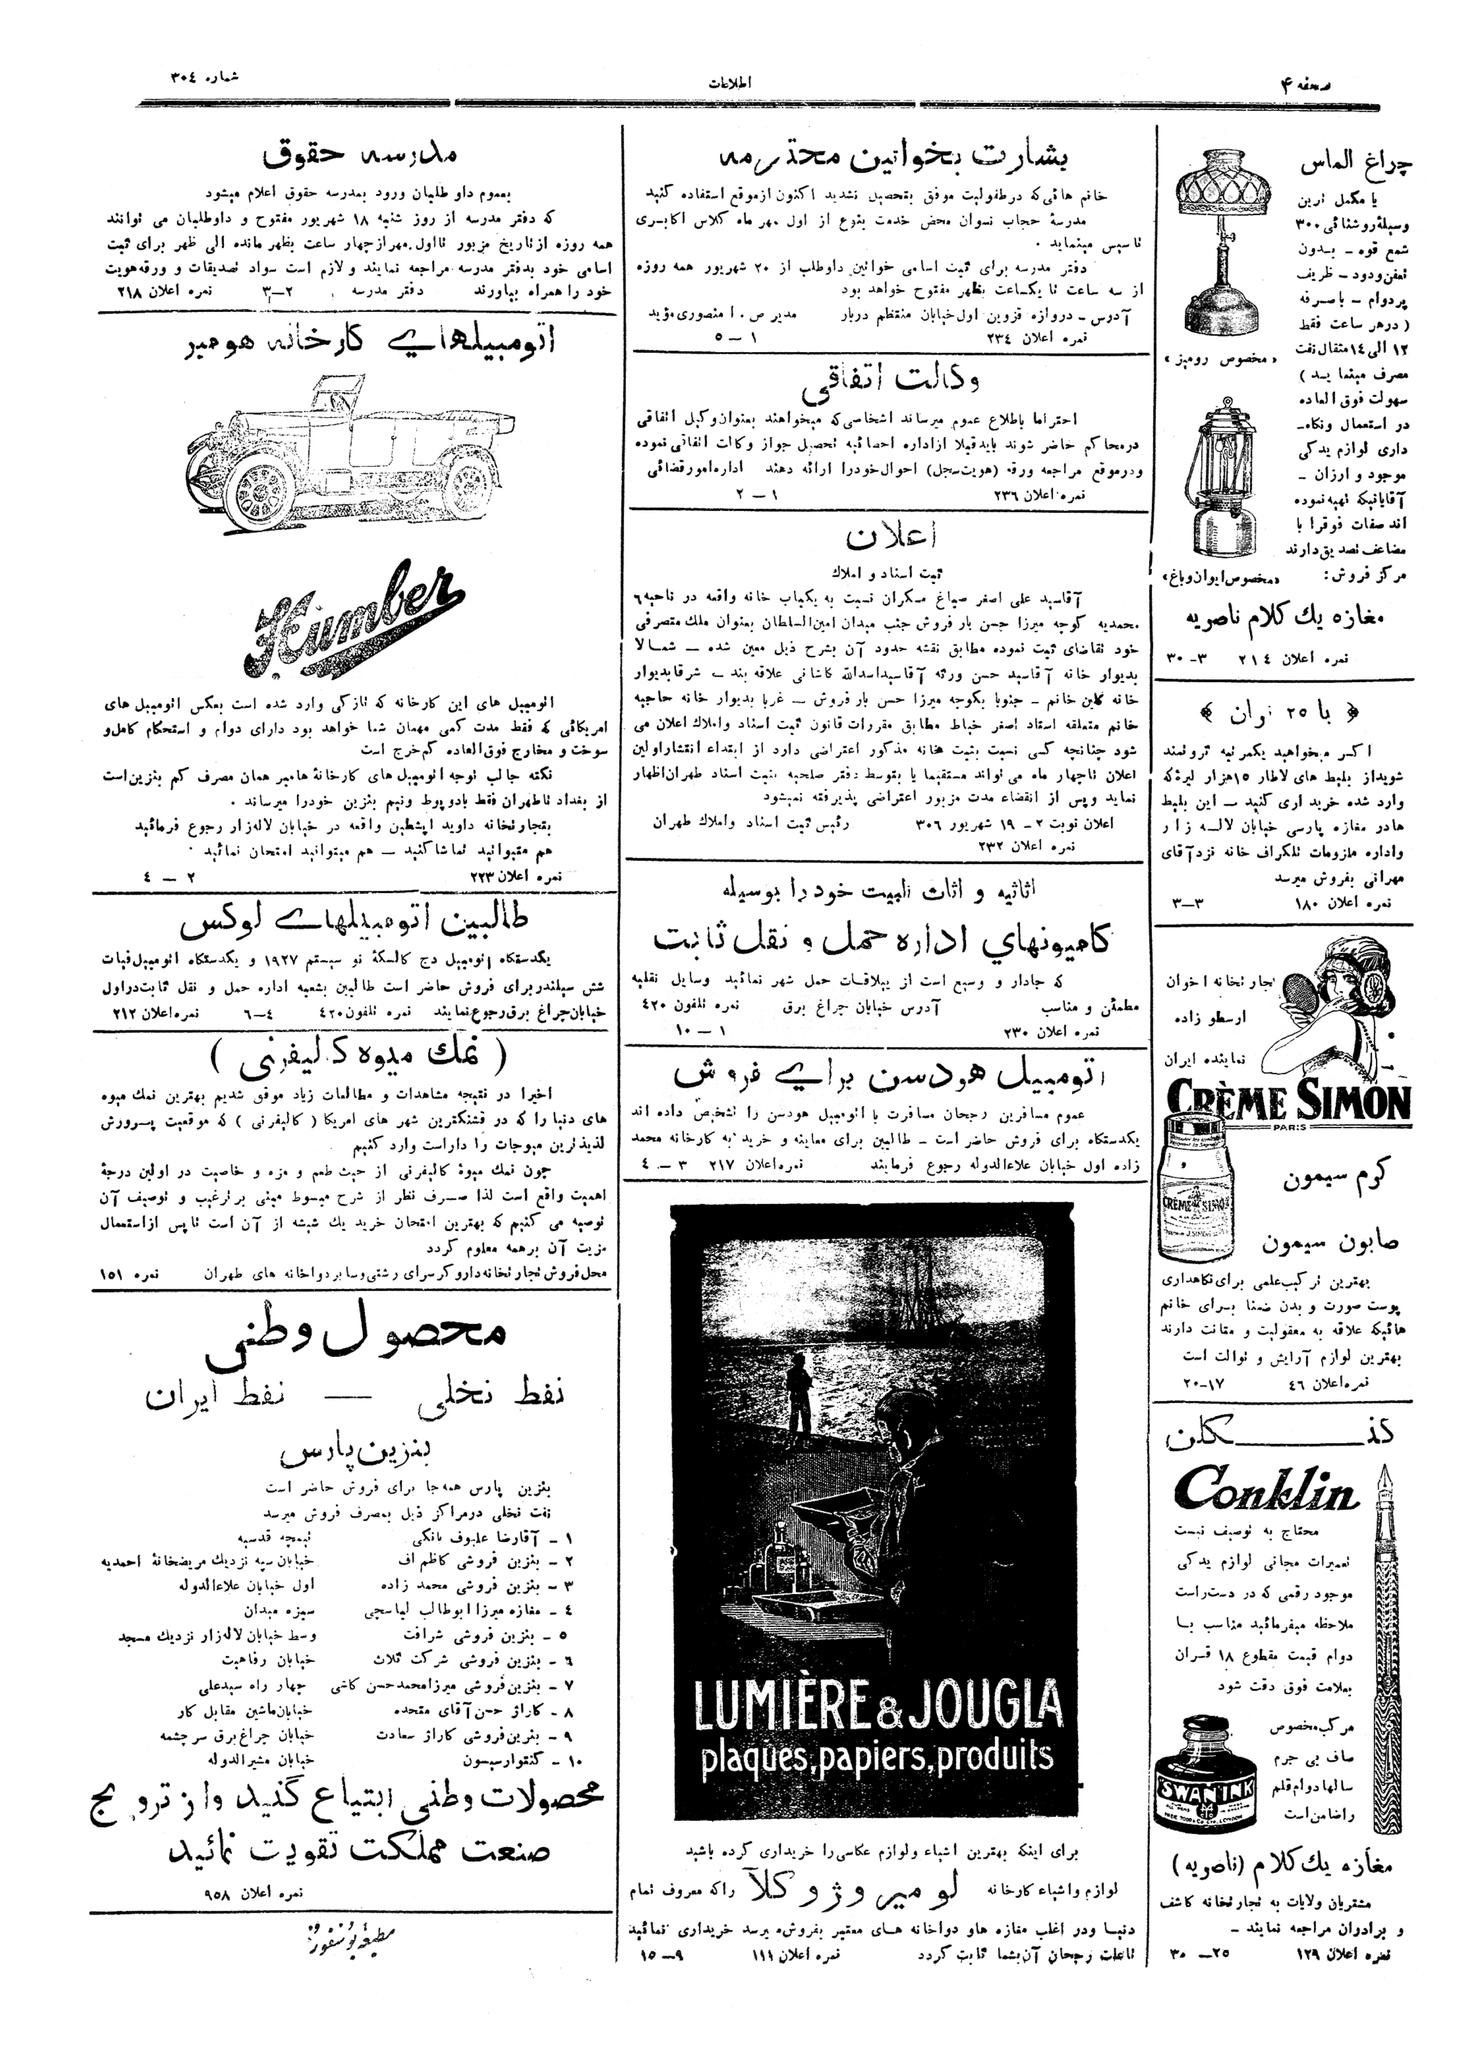 صفحه ۴
اطلاعات
شماره ۳۰۴
چراغ الماس
با مکمل ترین
وسیلهٔ روشنائی ۳۰۰
شمع قوه – بدون
تعفن ودود – ظریف
پردوام – باصرفه
( درهر ساعت فقط
۱۲ الی ۱۴ مثقال نفت
مصرف مینماید )
سهولت فوق العاده
در استعمال ونگاه–
داری لوازم یدکی
موجود و ارزان –
آقایانیکه تهیه نموده
اند صفات فوقرا با
مضاعف تصدیق دارند
مرکز فروش :
«مخصوص رومیز»
«مخصوص ایوان وباغ»
مغازه یك کلام ناصریه
نمره اعلان ۲۱۴ ۳–۳۰
﴿ با ۲۵ توان ﴾
اکر میخواهید یکمرتبه ثروتمند
شوید از بلیط های لاطار ۱۵هزار لیرهٔ که
وارد شده خریداری کنید – این بلیط
هادر مغازه پارسی خیابان لاله زار
واداره ملزومات تلگراف خانه نزد آقای
مهرانی بفروش میرسد
نمره اعلان ۱۸۰ ۳–۳
تجارتخانه اخوان
ارسطو زاده
نماینده ایران
CRÈME SIMON
PARIS
CRÈME SIMON
کرم سیمون
صابون سیمون
بهترین ترکیب علمی برای نگاهداری
پوست صورت و بدن ضمنا برای خانم
هائیکه علاقه به معقولیت و متانت دارند
بهترین لوازم آرایش و توالت است
نمره اعلان ۴۶ ۱۷–۲۰
کنکلن
Conklin
محتاج به توصیف نیست
تعمیرات مجانی لوازم یدکی
موجود رقمی که در دست راست
ملاحظه میفرمائید مناسب با
دوام قیمت مقطوع ۱۸ قران
بعلامت فوق دقت شود
مرکب مخصوص
صاف بی جرم
سالها دوام قلم
را ضامن است
SWAN INK
مغازه یك کلام (ناصریه)
مشتریان ولایات به تجارتخانه کاشف
و برادران مراجعه نمایند –
نمره اعلان ۱۲۹ ۲۵–۳۰
بشارت بخوانین محترمه
خانم هائی که درطفولیت موفق بتحصیل نشدید اکنون ازموقع استفاده کنید
مدرسهٔ حجاب نسوان محض خدمت بنوع از اول مهر ماه کلاس اکابری
تاسیس مینماید .
دفتر مدرسه برای ثبت اسامی خوانین داوطلب از ۲۰ شهریور همه روزه
از سه ساعت تا یکساعت بظهر مفتوح خواهد بود
آدرس – دروازه قزوین اول خیابان منتظم دربار مدیر ص . ا منصوری مؤید
نمره اعلان ۲۳۴ ۱ – ۵
وکالت اتفاقی
احتراما باطلاع عموم میرساند اشخاصی که میخواهند بعنوان وکیل اتفاقی
درمحاکم حاضر شوند باید قبلا ازاداره احصائیه تحصیل جواز وکالت اتفاقی نموده
ودرموقع مراجعه ورقه (هویت سجل) احوال خودرا ارائه دهند اداره امور قضائی
نمره اعلان ۲۳۶ ۱ – ۲
اعلان
ثبت اسناد و املاك
آقاسید علی اصغر صباغ مسگران نسبت به یکباب خانه واقعه در ناحیه ۶
محمدیه کوچه میرزا حسن بار فروش جنب میدان امین السلطان بعنوان ملك متصرفی
خود تقاضای ثبت نموده مطابق نقشه حدود آن بشرح ذیل معین شده – شمالا
بدیوار خانه آقاسید حسن ورثه آقاسیداسدالله کاشانی علاقه بند – شرقا بدیوار
خانه گلین خانم – جنوبا بکوچه میرزا حسن بار فروش – غربا بدیوار خانه حاجیه
خانم متعلقه استاد اصغر خیاط مطابق مقررات قانون ثبت اسناد واملاك اعلان می
شود چنانچه کسی نسبت بثبت خانه مذکور اعتراضی دارد از ابتداء انتشار اولین
اعلان تاچهار ماه می تواند مستقیما یا بتوسط دفتر صلحیه بثبت اسناد طهران اظهار
نماید وپس از انقضاء مدت مزبور اعتراضی پذیرفته نمیشود
اعلان نوبت ۲ – ۱۹ شهریور ۳۰۶ رئیس ثبت اسناد واملاك طهران
نمره اعلان ۲۳۲
اثاثیه و اثاث البیت خود را بوسیله
کامیونهای اداره حمل و نقل ثابت
که جادار و وسیع است از ییلاقات حمل شهر نمائید وسایل نقلیه
مطمئن و مناسب آدرس خیابان چراغ برق نمره تلفون ۴۲۰
نمره اعلان ۲۳۰ ۱ – ۱۰
اتومبیل هودسن برای فروش
عموم مسافرین رجحان مسافرت با اتومبیل هودسن را تشخیص داده اند
یکدستگاه برای فروش حاضر است – طالبین برای معاینه و خرید به کارخانه محمد
زاده اول خیابان علاءالدوله رجوع فرمایند نمره اعلان ۲۱۷ ۳ – ۴
LUMIÈRE & JOUGLA
plaques, papiers, produits
برای اینکه بهترین اشیاء ولوازم عکاسی را خریداری کرده باشید
لوازم واشیاء کارخانه لومیر وژوگلآ راکه معروف تمام
دنیا ودر اغلب مغازه هاو دواخانه های معتبر بفروش میرسد خریداری نمائید
تاعلت رجحان آن بشما ثابت گردد نمره اعلان ۱۱۱ ۹–۱۵
مدرسه حقوق
بعموم داوطلبان ورود بمدرسه حقوق اعلام میشود
که دفتر مدرسه از روز شنبه ۱۸ شهریور مفتوح و داوطلبان می توانند
همه روزه ازتاریخ مزبور تااول مهر ازچهار ساعت بظهر مانده الی ظهر برای ثبت
اسامی خود بدفتر مدرسه مراجعه نمایند ولازم است سواد تصدیقات و ورقه هویت
خود را همراه بیاورند دفتر مدرسه ۲–۳ نمره اعلان ۲۱۸
اتومبیلهای کارخانه هومبر
Humber
اتومبیل های این کارخانه که تازگی وارد شده است بعکس اتومبیل های
امریکائی که فقط مدت کمی مهمان شما خواهد بود دارای دوام و استحکام کامل و
سوخت و مخارج فوق العاده کم خرج است
نکته جالب توجه اتومبیل های کارخانهٔ هامبر همان مصرف کم بنزین است
از بغداد تاطهران فقط بادوپوط ونیم بنزین خودرا میرساند .
بتجارتخانه داوید اپشطین واقعه در خیابان لاله زار رجوع فرمائید
هم میتوانید تماشا کنید – هم میتوانید امتحان نمائید .
نمره اعلان ۲۲۳ ۲ – ۴
طالبین اتومبیلهای لوکس
یکدستگاه اتومبیل دج کالسکهٔ نو سیستم ۱۹۲۷ و یکدستگاه اتومبیل فیات
شش سیلندر برای فروش حاضر است طالبین بشعبه اداره حمل و نقل ثابت دراول
خیابان چراغ برق رجوع نمایند نمره تلفون ۴۲۰ ۴–۶ نمره اعلان ۲۱۲
( نمك میوه کالیفرنی )
اخیرا در نتیجه مشاهدات و مطالعات زیاد موفق شدیم بهترین نمك میوه
های دنیا را که در قشنگترین شهر های امریکا ( کالیفرنی ) که موقعیت پرورش
لذیذترین میوجات را داراست وارد کنیم
چون نمك میوهٔ کالیفرنی از حیث طعم و مزه و خاصیت در اولین درجهٔ
اهمیت واقع است لذا صرف نظر از شرح مبسوط مبنی بر ترغیب و توصیف آن
توصیه می کنیم که بهترین امتحان خرید یك شیشه از آن است تاپس ازاستعمال
مزیت آن برهمه معلوم گردد
محل فروش تجارتخانه داروگر سرای رشتی وسایر دواخانه های طهران نمره ۱۵۱
محصول وطنی
نفط نخلی — نفط ایران
بنزین پارس
بنزین پارس همه جا برای فروش حاضر است
نفت نخلی درمراکز ذیل بمصرف فروش میرسد
۱ – آقارضا علیوف بانکی تیمچه قدسیه
۲ – بنزین فروشی کاظم اف خیابان سپه نزدیك مریضخانهٔ احمدیه
۳ – بنزین فروشی محمد زاده اول خیابان علاءالدوله
۴ – مغازه میرزا ابوطالب لباسچی سبزه میدان
۵ – بنزین فروشی شرافت وسط خیابان لاله زار نزدیك مسجد
۶ – بنزین فروشی شرکت ثلاث خیابان رفاهیت
۷ – بنزین فروشی میرزامحمدحسن کاشی چهار راه سیدعلی
۸ – کاراژ حسن آقای متحده خیابان ماشین مقابل کار
۹ – بنزین فروشی کاراژ سعادت خیابان چراغ برق سر چشمه
۱۰ – گنتوارسیسون خیابان مشیرالدوله
محصولات وطنی ابتیاع کنید واز ترویج
صنعت مملکت تقویت نمائید
نمره اعلان ۹۵۸
مطبعهٔ بوسفور